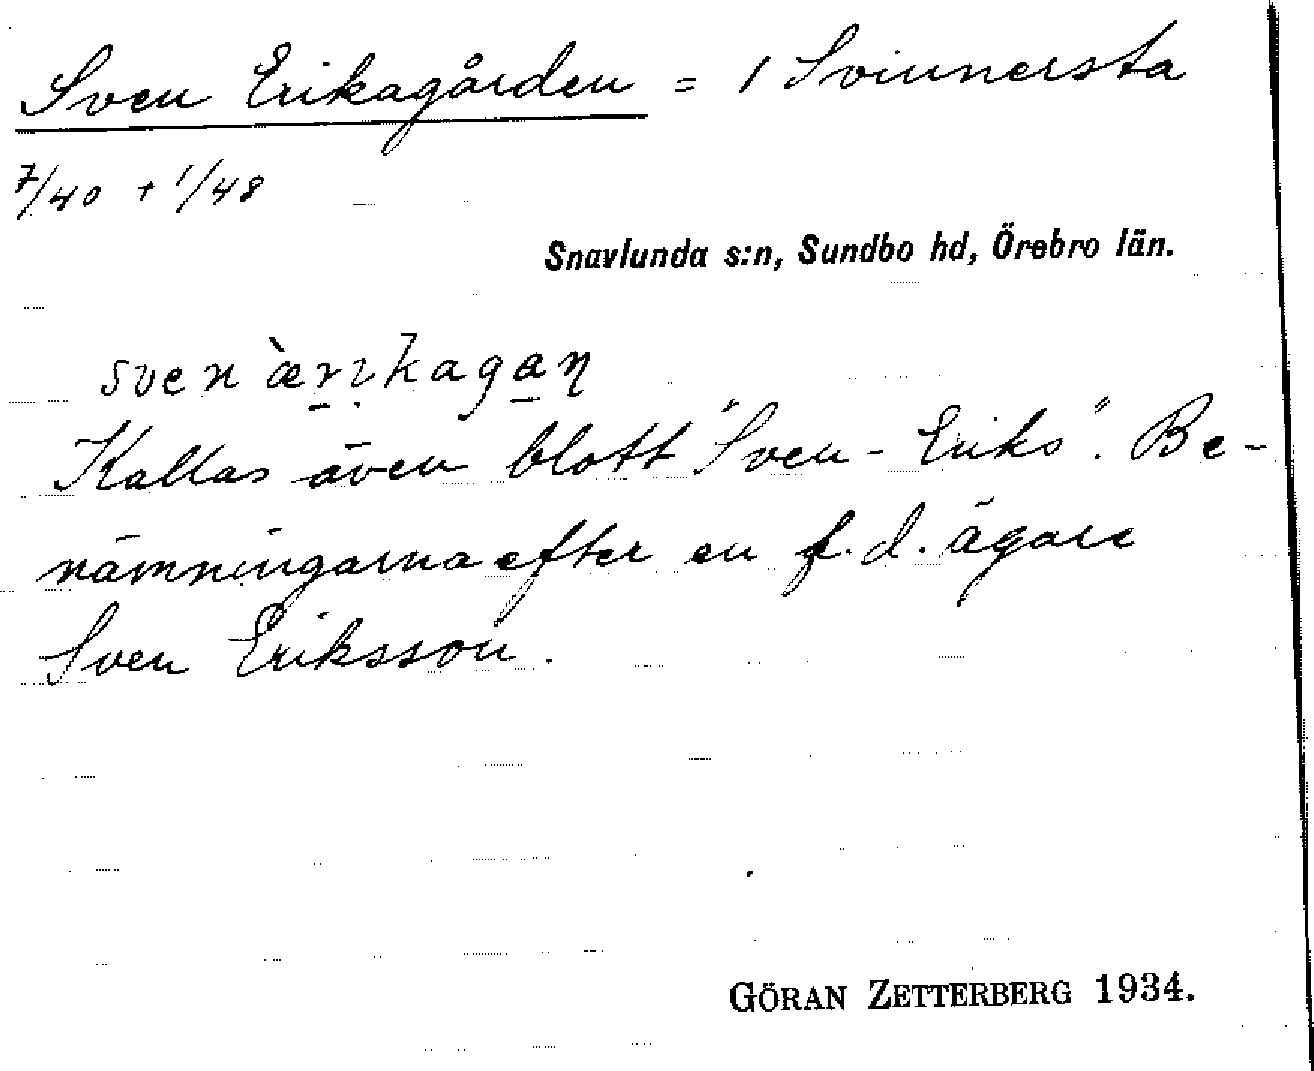 Sven Erikagården = 1 Svinnersta
7/40 + 1/48
Snavlunda s:n, Sundbo hd, Örebro län.
sven ærıkagan
Kallas även blott "Sven-Eriks". Be-
nämningarna efter en f.d. ägare
Sven Eriksson.
GÖRAN ZETTERBERG 1934.